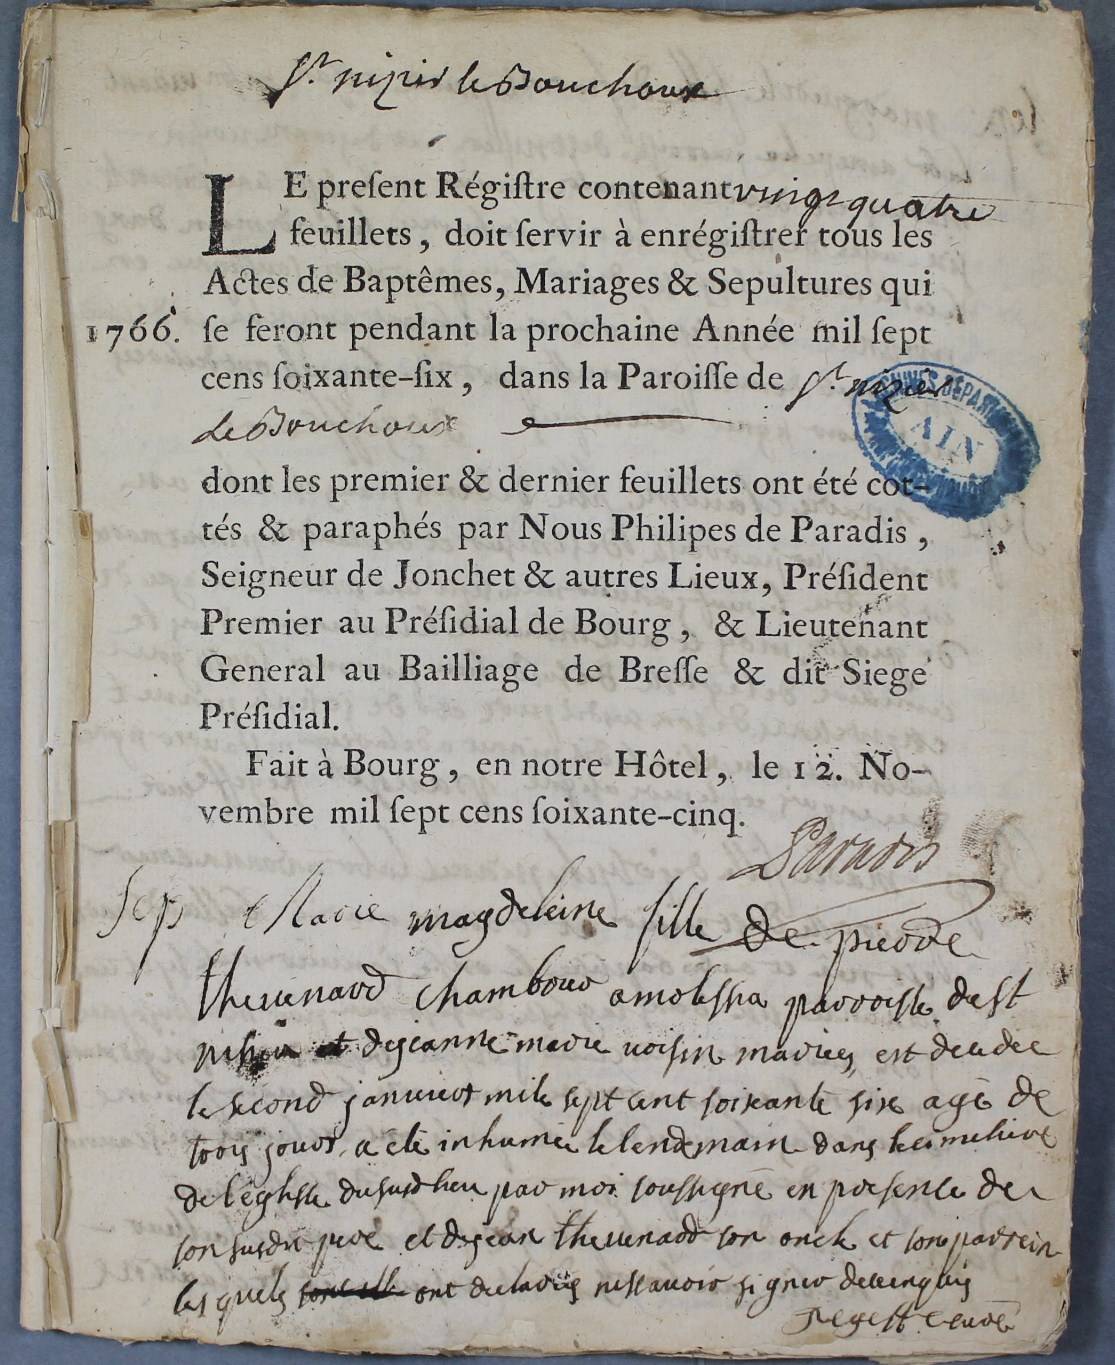 St. nizier le Bouchoux
LE preſent Régiſtre contenant vingt quatre
feuillets, doit ſervir à enrégiſtrer tous les
Actes de Baptêmes, Mariages & Sepultures qui
1766. ſe feront pendant la prochaine Année mil ſept
cens ſoixante-ſix, dans la Paroiſſe de St. nizier
le Bouchoux
ARCHIVES DÉPARTEMENTALES
AIN
dont les premier & dernier feuillets ont été cot-
tés & paraphés par Nous Philipes de Paradis,
Seigneur de Jonchet & autres Lieux, Préſident
Premier au Préſidial de Bourg, & Lieutenant
General au Bailliage de Breſſe & dit Siege
Préſidial.
Fait à Bourg, en notre Hôtel, le 12. No-
vembre mil ſept cens ſoixante-cinq.
Paradis
Sep Marie magdeleine fille de pierre
theuenard chambour a parroisse de st
nisier et de jeanne marie uoisin mariés, est decedee
le second januier mile sept cent soixante six agé de
trois jours, a eté inhumée le lendemain dans le cimetiere
de l'eglise du susd lieu par moi soussigné en presence de
son susdit pere et de jean theuenard son oncle et son parrein
les quels ont declarés ne scauoir signer de ce enquis